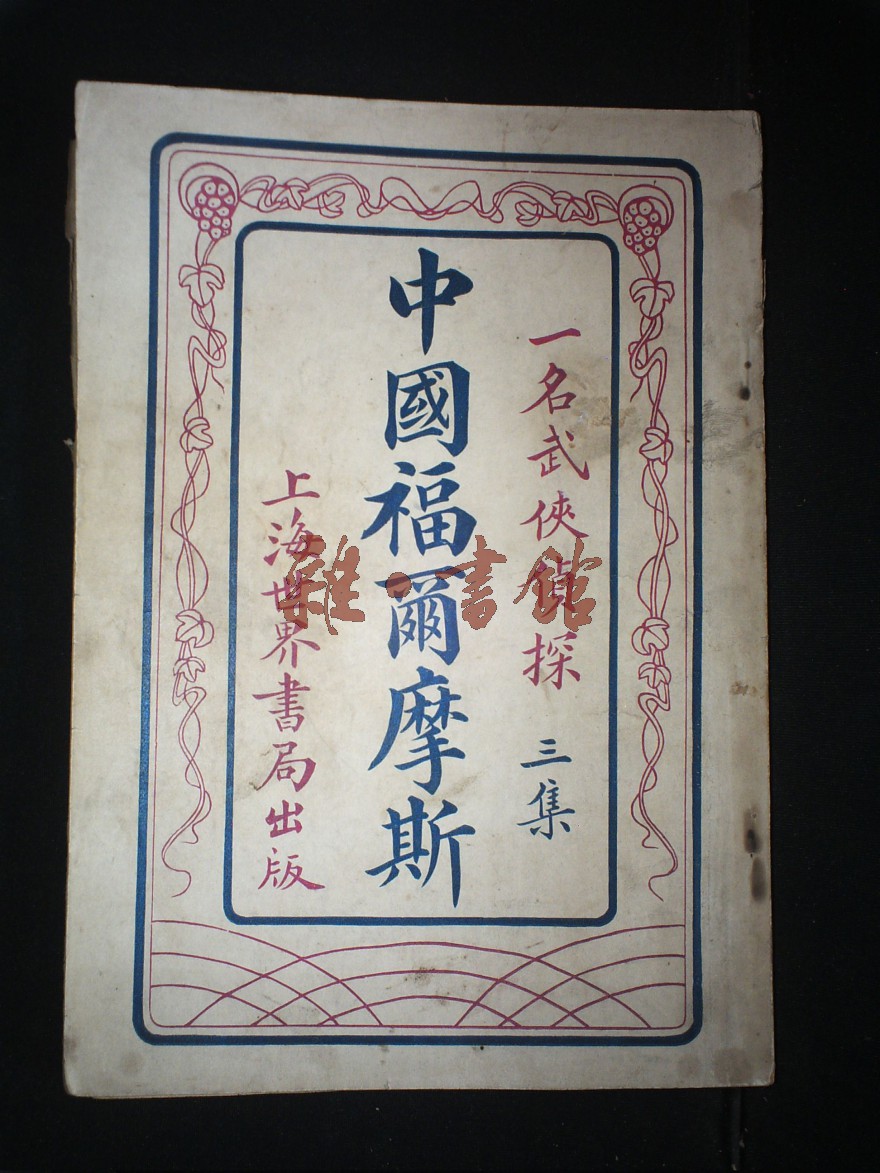 一名武俠偵探 三集
中國福爾摩斯
上海世界書局出版
雜·書館